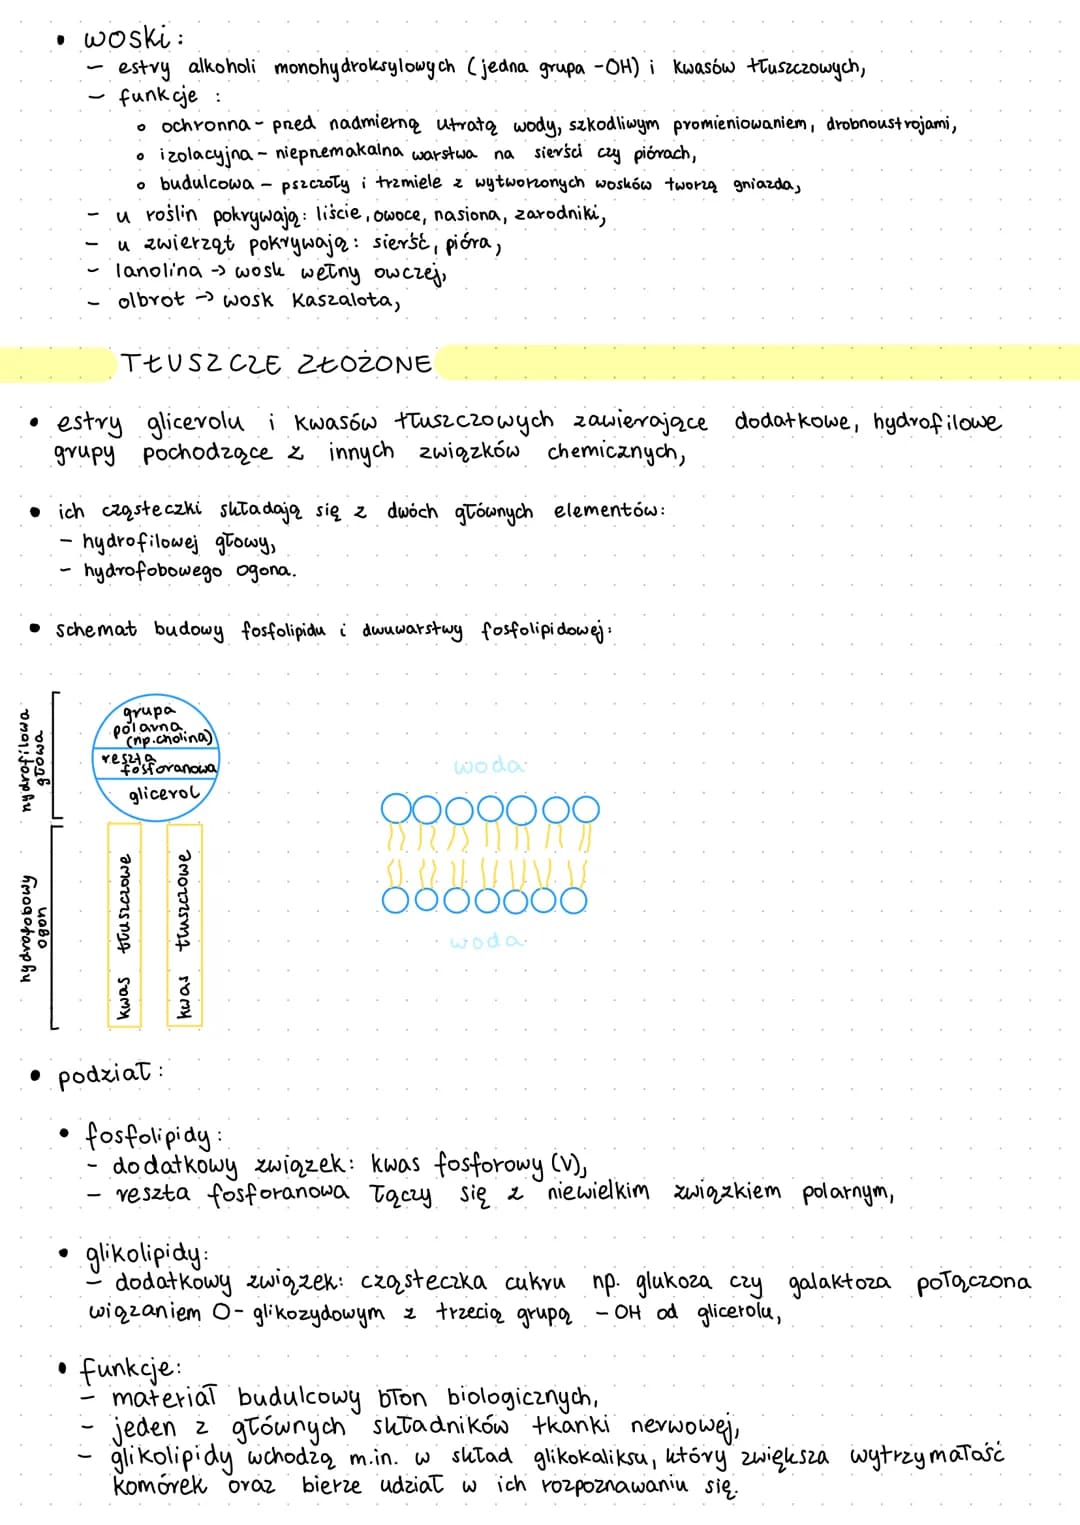 • woski:
- estry alkoholi monohydroksylowych (jedna grupa -OH) i kwasów tłuszczowych,
- funkcje :
◦ ochronna - przed nadmierną utratą wody, szkodliwym promieniowaniem, drobnoustrojami,
◦ izolacyjna - nieprzemakalna warstwa na sierści czy piórach,
◦ budulcowa - pszczoły i trzmiele z wytworzonych wosków tworzą gniazda,
- u roślin pokrywają: liście, owoce, nasiona, zarodniki,
- u zwierząt pokrywają: sierść, pióra,
- lanolina -> wosk wełny owczej,
- olbrot -> wosk kaszalota,
TŁUSZCZE ZŁOŻONE
• estry glicerolu i kwasów tłuszczowych zawierające dodatkowe, hydrofilowe
grupy pochodzące z innych związków chemicznych,
• ich cząsteczki składają się z dwóch głównych elementów:
- hydrofilowej głowy,
- hydrofobowego ogona.
• schemat budowy fosfolipidu i dwuwarstwy fosfolipidowej:
hydrofilowa
głowa
grupa
polarna
(np.cholina)
reszta
fosforanowa
glicerol
hydrofobowy
ogon
kwas tłuszczowe
kwas tłuszczowe
woda
woda
• podział:
• fosfolipidy:
- dodatkowy związek: kwas fosforowy (V),
- reszta fosforanowa łączy się z niewielkim związkiem polarnym,
• glikolipidy:
- dodatkowy związek: cząsteczka cukru np. glukoza czy galaktoza połączona
wiązaniem O-glikozydowym z trzecią grupą -OH od glicerolu,
• funkcje:
- materiał budulcowy błon biologicznych,
- jeden z głównych składników tkanki nerwowej,
- glikolipidy wchodzą m.in. w skład glikokaliksu, który zwiększa wytrzymałość
komórek oraz bierze udział w ich rozpoznawaniu się.